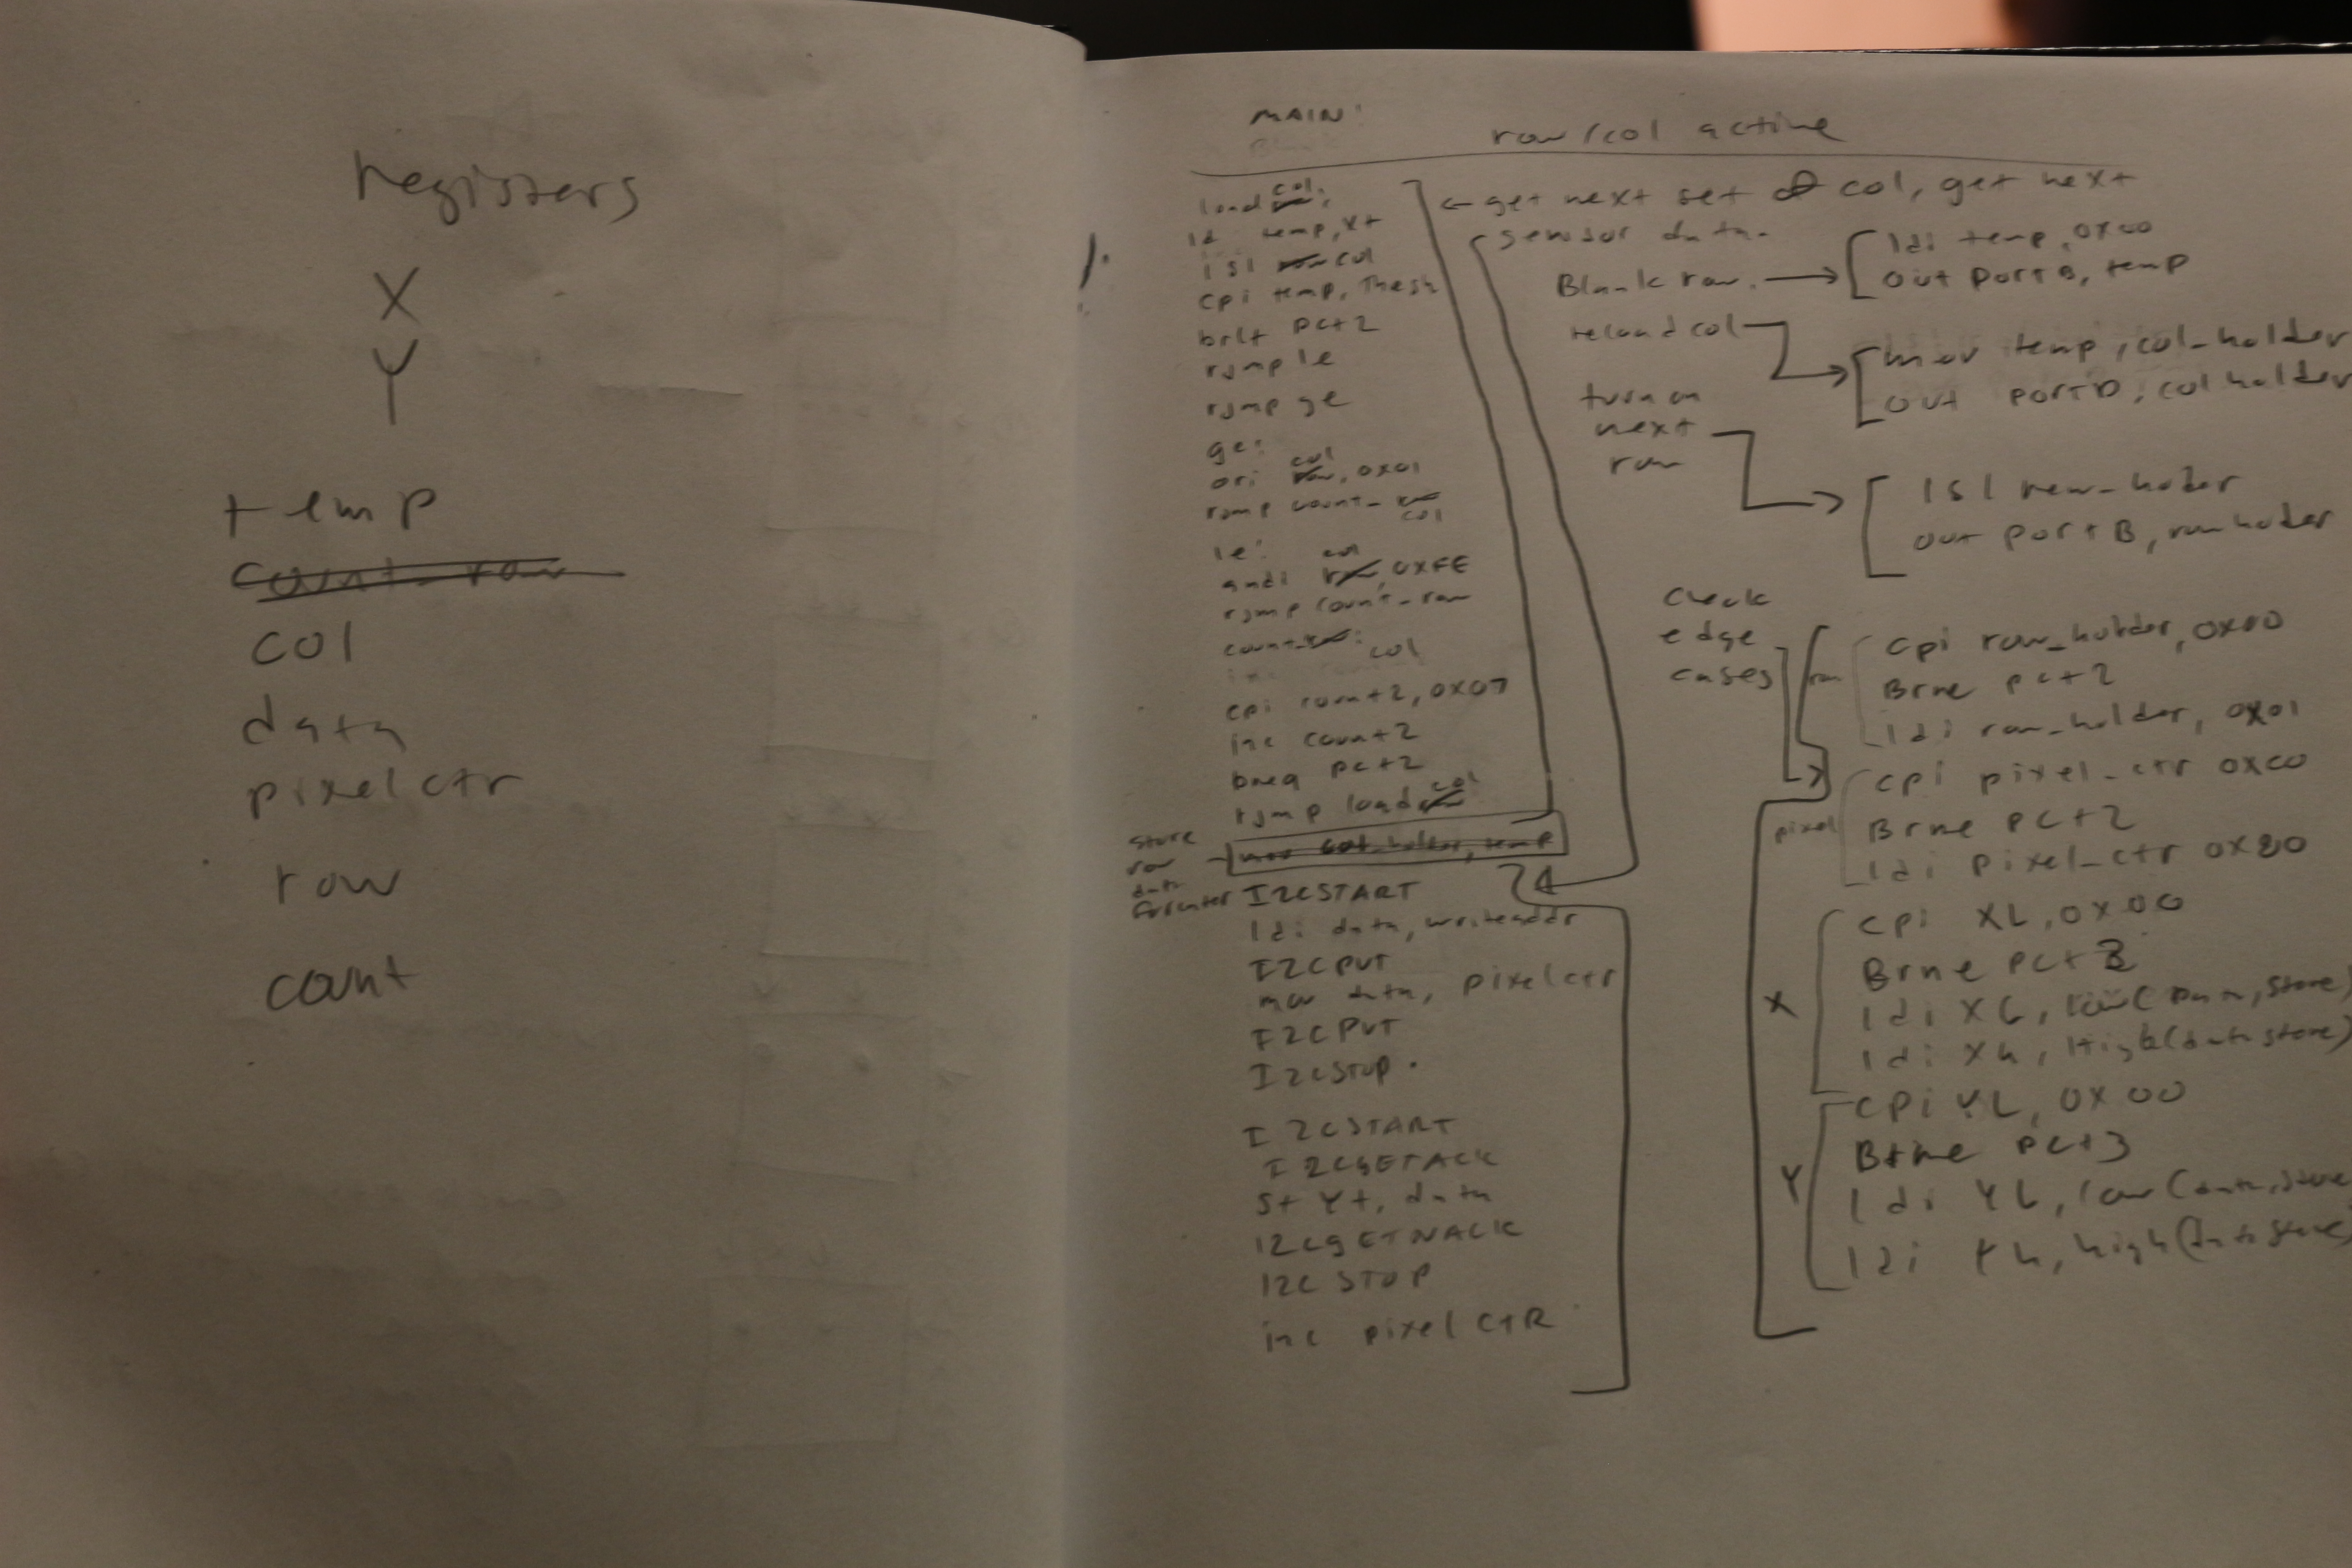 registers
X
Y
temp
count_row
col
data
pixelctr
row
count
MAIN:
row/col active
load col:
ld temp, X+
lsl col
cpi temp, Thesh
brlt pc+2
rjmp le
rjmp ge
ge:
ori col, 0x01
rjmp count_col
le:
andi col, 0xFE
rjmp count_row
count col:
cpi count2, 0x07
inc count2
breq pc+2
rjmp load col
store
row
data
mov col_holder, temp
I2CSTART
ldi data, writeaddr
I2CPUT
mov data, pixelctr
I2CPUT
I2CSTOP.
I2CSTART
I2CGETACK
st Y+, data
I2CGETNACK
I2C STOP
inc pixel CTR
← get next set of col, get next
sensor data.
Blank row.
ldi temp, 0x00
out portB, temp
reload col
mov temp, col_holder
out portD, colholder
turn on
next
row
lsl row_holder
out portB, rowholder
check
edge
cases
row
cpi row_holder, 0x00
Brne pc+2
ldi row_holder, 0x01
pixel
cpi pixel_ctr 0xC0
Brne pc+2
ldi pixel_ctr 0x80
X
cpi XL, 0x00
Brne pc+3
ldi XL, low(data, store)
ldi Xh, High(data store)
Y
cpi YL, 0x00
Brne pc+3
ldi YL, low(data, store
ldi Yh, high(data store)